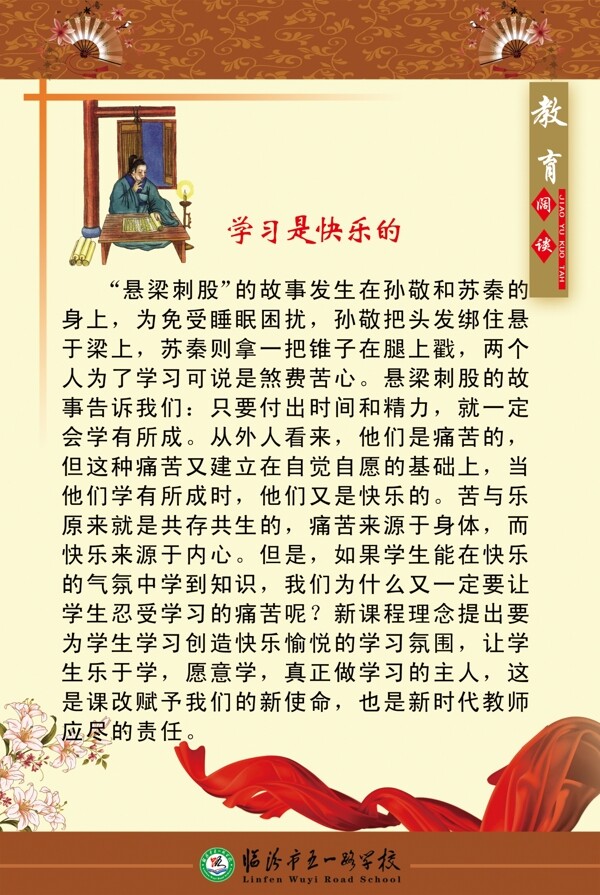 教育
阔谈
JIAO YU KUO TAH
学习是快乐的
“悬梁刺股”的故事发生在孙敬和苏秦的
身上，为免受睡眠困扰，孙敬把头发绑住悬
于梁上，苏秦则拿一把锥子在腿上戳，两个
人为了学习可说是煞费苦心。悬梁刺股的故
事告诉我们：只要付出时间和精力，就一定
会学有所成。从外人看来，他们是痛苦的，
但这种痛苦又建立在自觉自愿的基础上，当
他们学有所成时，他们又是快乐的。苦与乐
原来就是共存共生的，痛苦来源于身体，而
快乐来源于内心。但是，如果学生能在快乐
的气氛中学到知识，我们为什么又一定要让
学生忍受学习的痛苦呢？新课程理念提出要
为学生学习创造快乐愉悦的学习氛围，让学
生乐于学，愿意学，真正做学习的主人，这
是课改赋予我们的新使命，也是新时代教师
应尽的责任。
临汾市五一路学校
Linfen Wuyi Road School